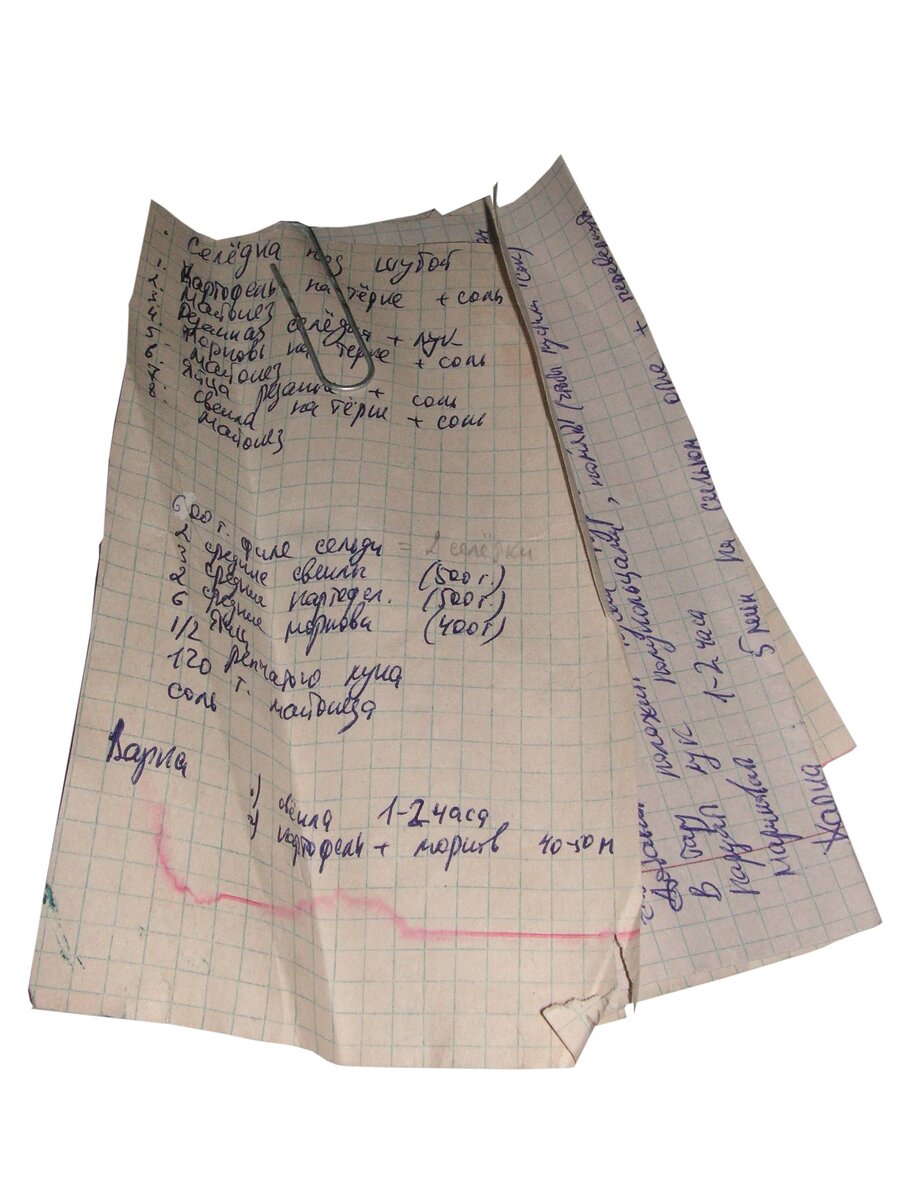 Селёдка под шубой
1. Картофель на тёрке + соль
2. Майонез
3. Резанная селёдка + лук
4. Морковь на тёрке + соль
5. Майонез
6. Яйца резаные + соль
7. Свекла на тёрке + соль
8. Майонез
600 г. филе сельди = 2 селёдки
2 средние свеклы (500 г.)
3 средние картофел. (500 г)
2 средние моркови (400 г)
6 яиц
1/2 репчатого лука
120 г. майонеза
соль
Варка
1) свёкла 1-2 часа
2) картофель + морков 40-50 м
положил
В тару лук полукольцами
Маринован 1-2 часа
Жарка 5 мин на сильном огне +